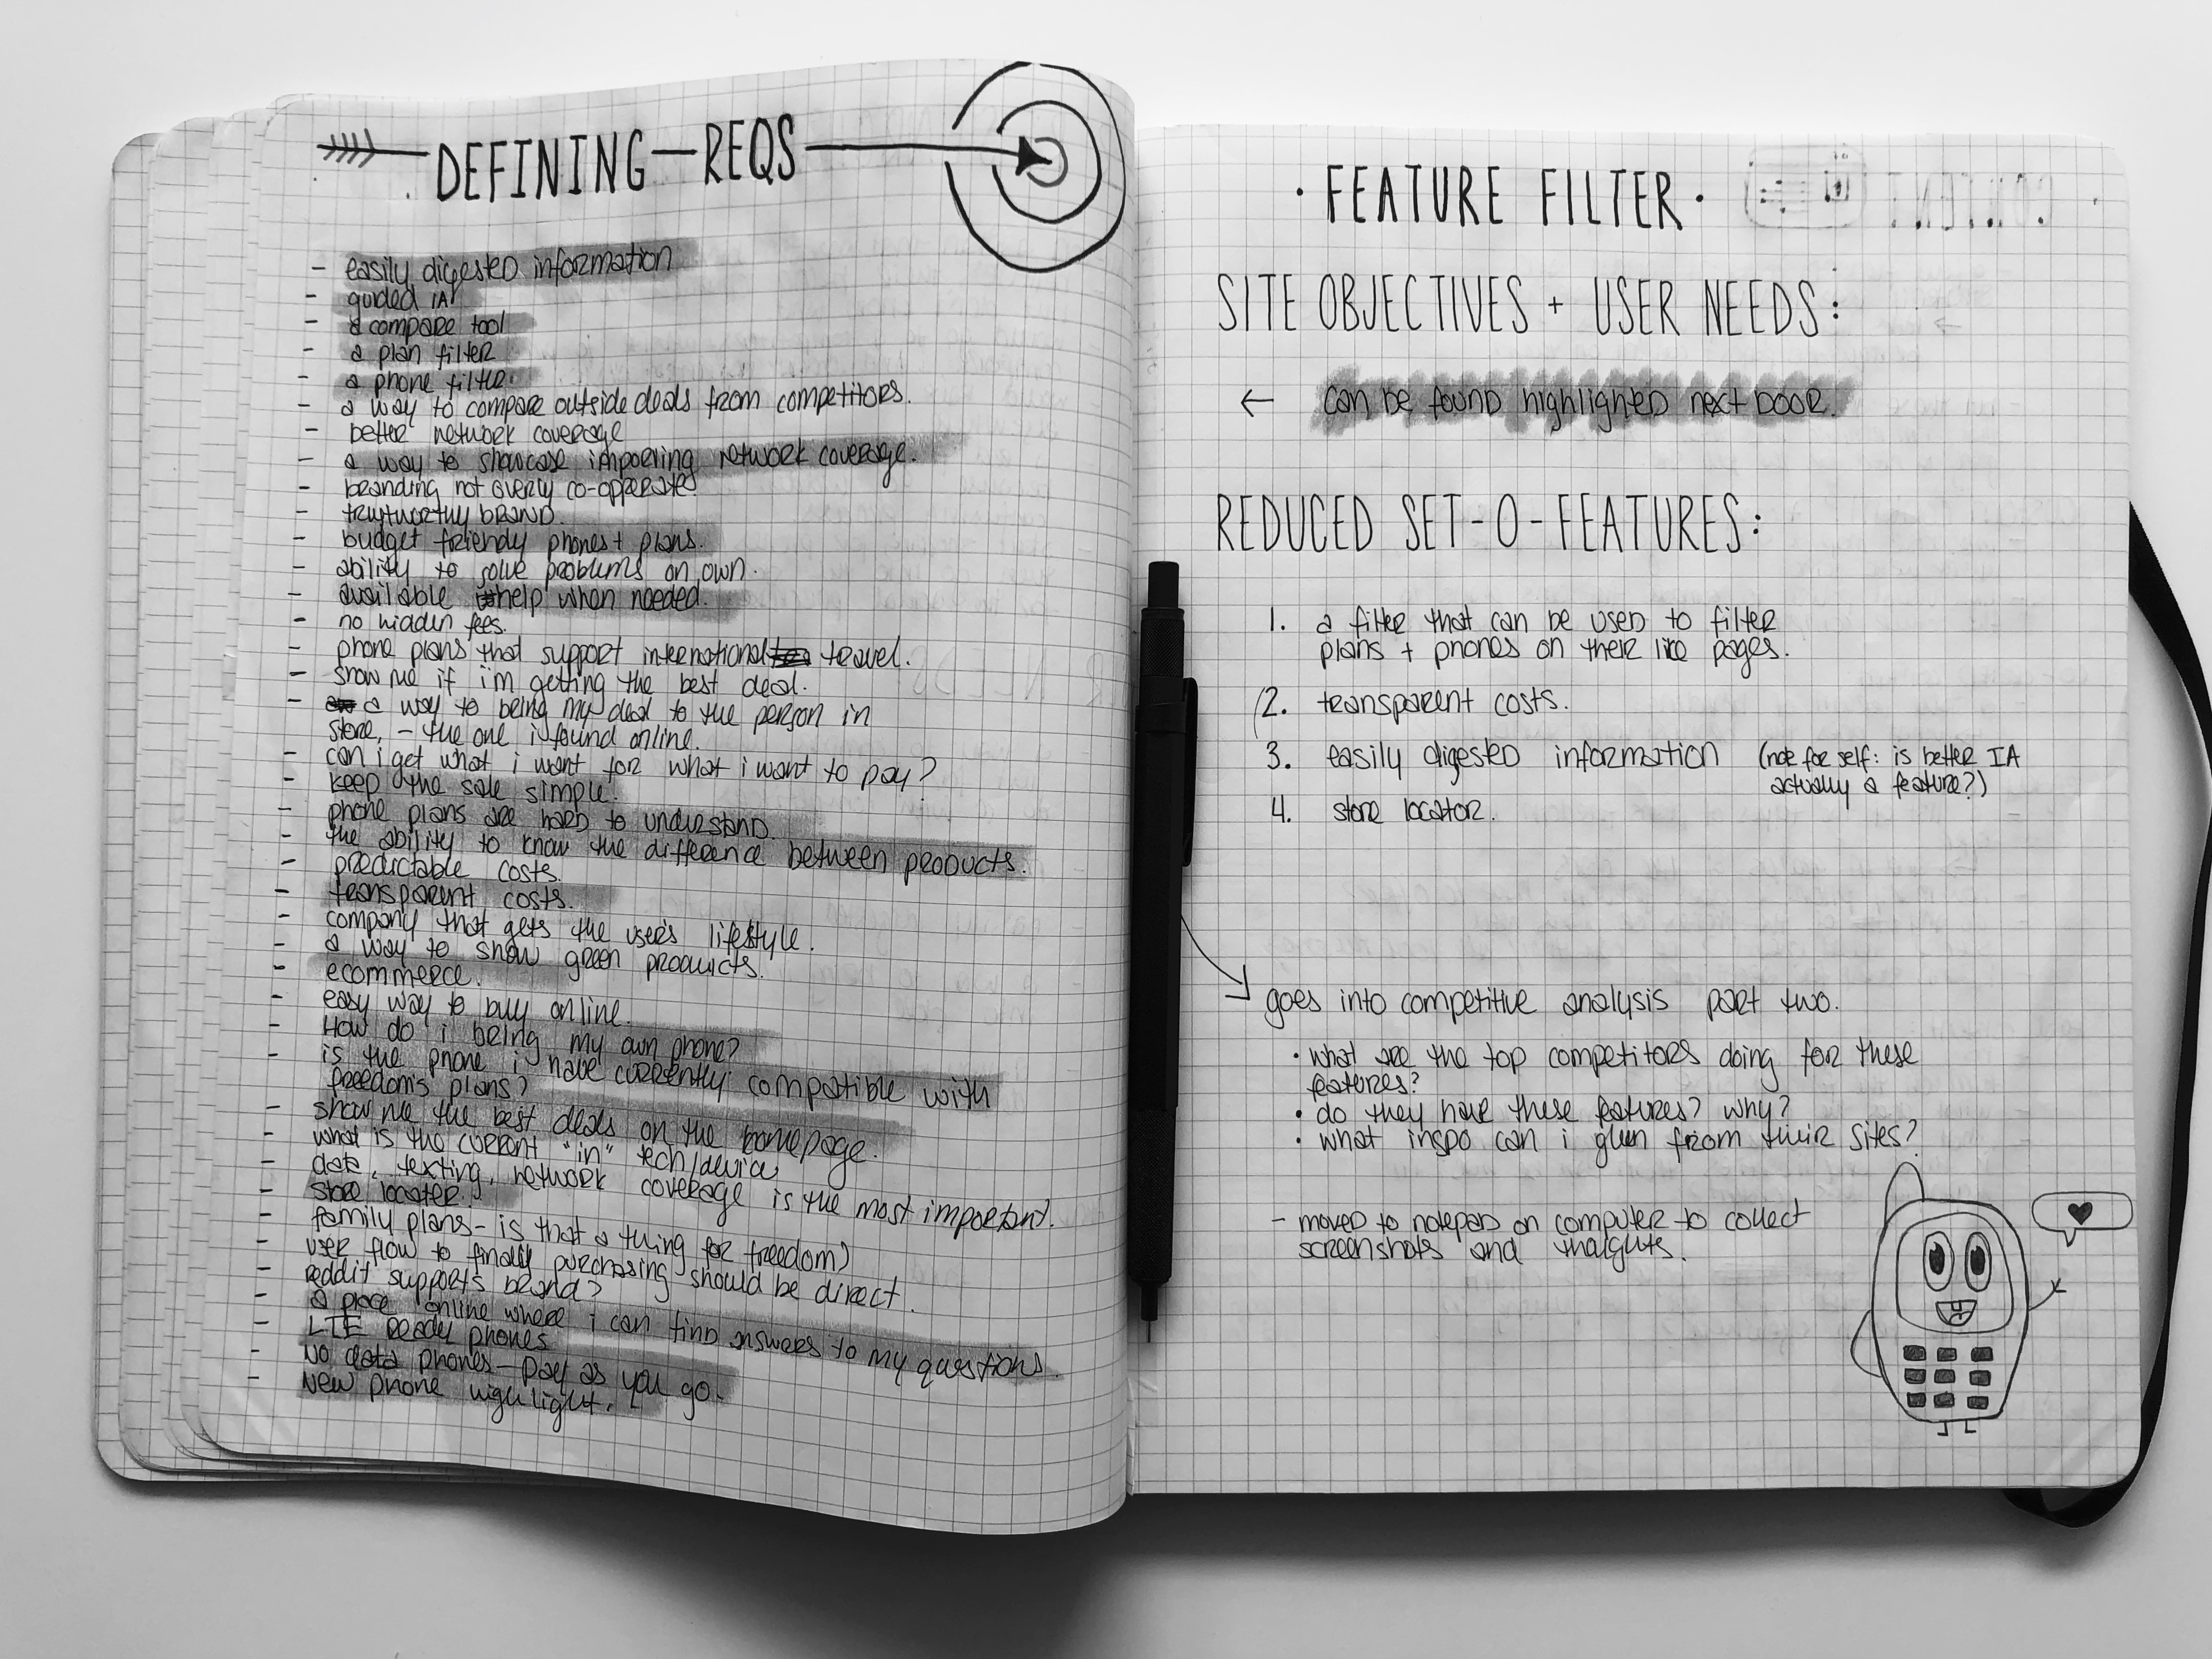 DEFINING REQS
- easily digested information
- guided IA
- a compare tool
- a plan filter
- a phone filter.
- a way to compare outside deals from competitors.
- better network coverage
- a way to showcase improving network coverage.
- branding not overly co-opperate
- trustworthy brand.
- budget friendly phones + plans.
- ability to solve problems on own.
- available help when needed.
- no hidden fees.
- phone plans that support international travel.
- show me if i'm getting the best deal.
- a way to bring my deal to the person in
store, - the one i found online.
- can i get what i want for what i want to pay?
- keep the sale simple.
- phone plans are hard to understand.
- the ability to know the difference between products.
- predictable costs.
- transparent costs.
- company that gets the user's lifestyle.
- a way to show green products.
- ecommerce.
- easy way to buy online.
- How do i bring my own phone?
- is the phone i have currently compatible with
freedom's plans?
- show me the best deals on the homepage.
- what is the current "in" tech/device
- data, texting, network coverage is the most important.
- store locater.
- family plans - is that a thing for freedom?
- user flow to finally purchasing should be direct.
- reddit supports brand?
- a place online where i can find answers to my questions.
- LTE Ready phones
- No data phones - pay as you go.
- New phone highlight.
· FEATURE FILTER ·
SITE OBJECTIVES + USER NEEDS:
← can be found highlighted next door.
REDUCED SET-O-FEATURES:
1. a filter that can be used to filter
plans + phones on their like pages.
2. transparent costs.
3. easily digested information (note for self: is better IA
actually a feature?)
4. store locator.
goes into competitive analysis part two.
• what are the top competitors doing for these
features?
• do they have these features? why?
• what inspo can i glean from their sites?
- moved to notepad on computer to collect
screenshots and thoughts.